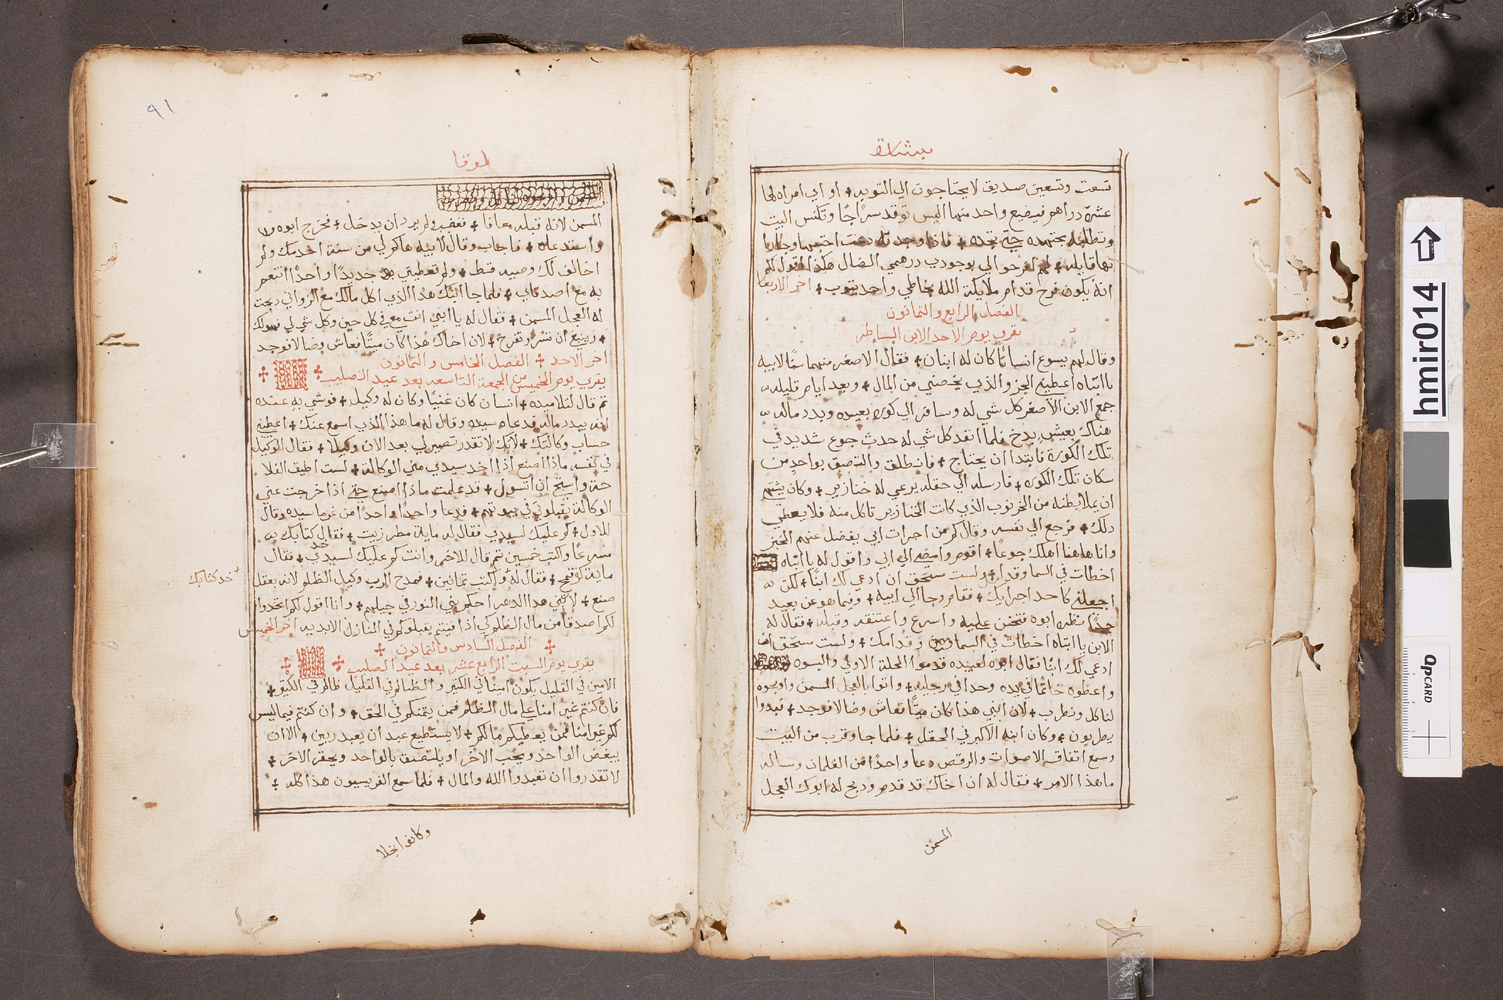 بشارة
تسعت وتسعين صديق لا يحتاجون الي التوبه + او اي امراه لها
عشرة دراهم فيضيع واحد منها اليس توقد سراجًا وتكنس البيت
وتطلبه مجتهده حتي تجده + فاذا وجدته دعت احبتها وجاراتها
قايله + افرحوا لي بوجودي درهمي الضال هكذا اقول لكم
انه يكون فرح قدام ملايكة الله بخاطي واحد يتوب + اخر الاربعا
الفصل الرابع والثمانون
يقري يوم الاحد الابن الشاطر
وقال لهم يسوع انسانًا كان له ابنان + فقال الاصغر منهما لابيه
يا ابتاه اعطيني الجز والذي يخصني من المال + وبعد ايام قليله
جمع الابن الاصغر كل شي له وسافر الي كوره بعيده وبدد ماله
هناك بعيش بدخ فلما انفد كل شي له حدث جوع شديد في
تلك الكورة فابتدا ان يحتاج + فانطلق والتصق بواحد من
سكان تلك الكوره + فارسله الي حقله يرعي له خنازير + وكان يشتهي
ان يملا بطنه من الخرنوب الذي كانت الخنازير تاكل منه فلا يعطي
ذلك + فرجع الي نفسه وقال كم من اجرات ابي يفضل عنهم الخبز
وانا هاهنا اهلك جوعًا + اقوم وامضي الي ابي واقول له يا ابتاه
اخطات في السما وقدامك + ولست مستحق ان ادعي لك ابنًا + لكن
اجعلني كاحد اجرايك + فقام وجا الي ابيه + وفيما هو عن بعيد
جدًا نظره ابوه فتحنن عليه واسرع واعتنقه وقبله + فقال له
الابن يا ابتاه اخطات في السما وقدامك + ولست مستحق ان
ادعي لك ابنًا فقال ابوه لعبيده قدموا الحلة الاولي والبسوه
واعطوه خاتمًا في يده وحدا في رجليه + واتوا بالعجل المسمن واذبحوه
لناكل ونطرب + لان ابني هذا كان ميتًا فعاش وضالا فوجد + فبدوا
يطربون + وكان ابنه الاكبر في الحقل + فلما جا وقرب من البيت
وسمع اتفاق الاصوات والرقص دعا واحدًا من الغلمان وساله
ما هذا الامر + فقال له ان اخاك قد قدم وذبح له ابوك العجل
المسمن
٩١
لوقا
المسمن لانه قبله معافا + فغضب ولم يرد ان يدخل + فخرج ابوه
واستدعاه + فاجاب وقال لابيه ها كم لي من سنة اخدمك ولم
اخالف لك وصيه قط + ولم تعطيني جديدًا واحدًا اتنعم
به مع اصدقاي + فلما جا ابنك هذا الذي اكل مالك مع الزواني ذبحت
له العجل المسمن + فقال له يا ابني انت معي في كل حين وكل شي لي فهو لك
+ وينبغي ان نسر ونفرح + لان اخاك هذا كان ميتًا فعاش وضالا فوجد
اخر الاحد + الفصل الخامس والثمانون
يقري يوم الخميس من الجمعة التاسعه بعد عيد الصليب
ثم قال لتلاميذه + انسان كان غنيًا وكان له وكيل + فوشي به عنده
انه يبدد ماله فدعاه سيده وقال له ما هذا الذي اسمع عنك + اعطني
حساب وكالتك + لانك لا تقدر تصير لي بعد الان وكيلا + فقال الوكيل
في نفسه ماذا اصنع اذا اخد سيدي مني الوكالة + لست اطيق الفلا
حة واستحي ان اتسول + قد علمت ماذا اصنع حتي اذا خرجت عني
الوكالة يقبلوني في بيوتهم + فدعا واحدًا واحدًا من غرما سيده وقال
للاول + كم عليك لسيدي فقال له ماية مطر زيت + فقال كتابك
مسرعًا واكتب خمسين ثم قال للاخر وانت كم عليك لسيدي + فقال
ماية كر قمح + فقال له واكتب ثمانين + فمدح الرب وكيل الظلم لانه بعقل
خد كتابك
صنع + لان بني هذا الدهر احكم بني النور في جيلهم + وانا اقول لكم اتخدوا
لكم اصدقا من مال الظلم لكي اذا فنيتم يقبلوكم في المنازل الابديه اخر الخميس
الفصل السادس والثمانون
يقري يوم السبت الرابع عشر بعد عيد الصليب
الامين في القليل يكون امينًا في الكثير والظالم في القليل ظالم في الكثير +
فان كنتم غير امنا علي مال الظلم فمن يتمنكم في الحق + وان كنتم فيما ليس
لكم غير امنا فمن يعطيكم مالكم + لا يستطيع عبد ان يعبد ربين + الا ان
يبغض الواحد ويحب الاخر او يلتصق بالواحد ويحقر الاخر +
لا تقدروا ان تعبدوا الله والمال + فلما سمع الفريسيون هذا كله +
وكانوا بخلا
hmir014
QPCARD